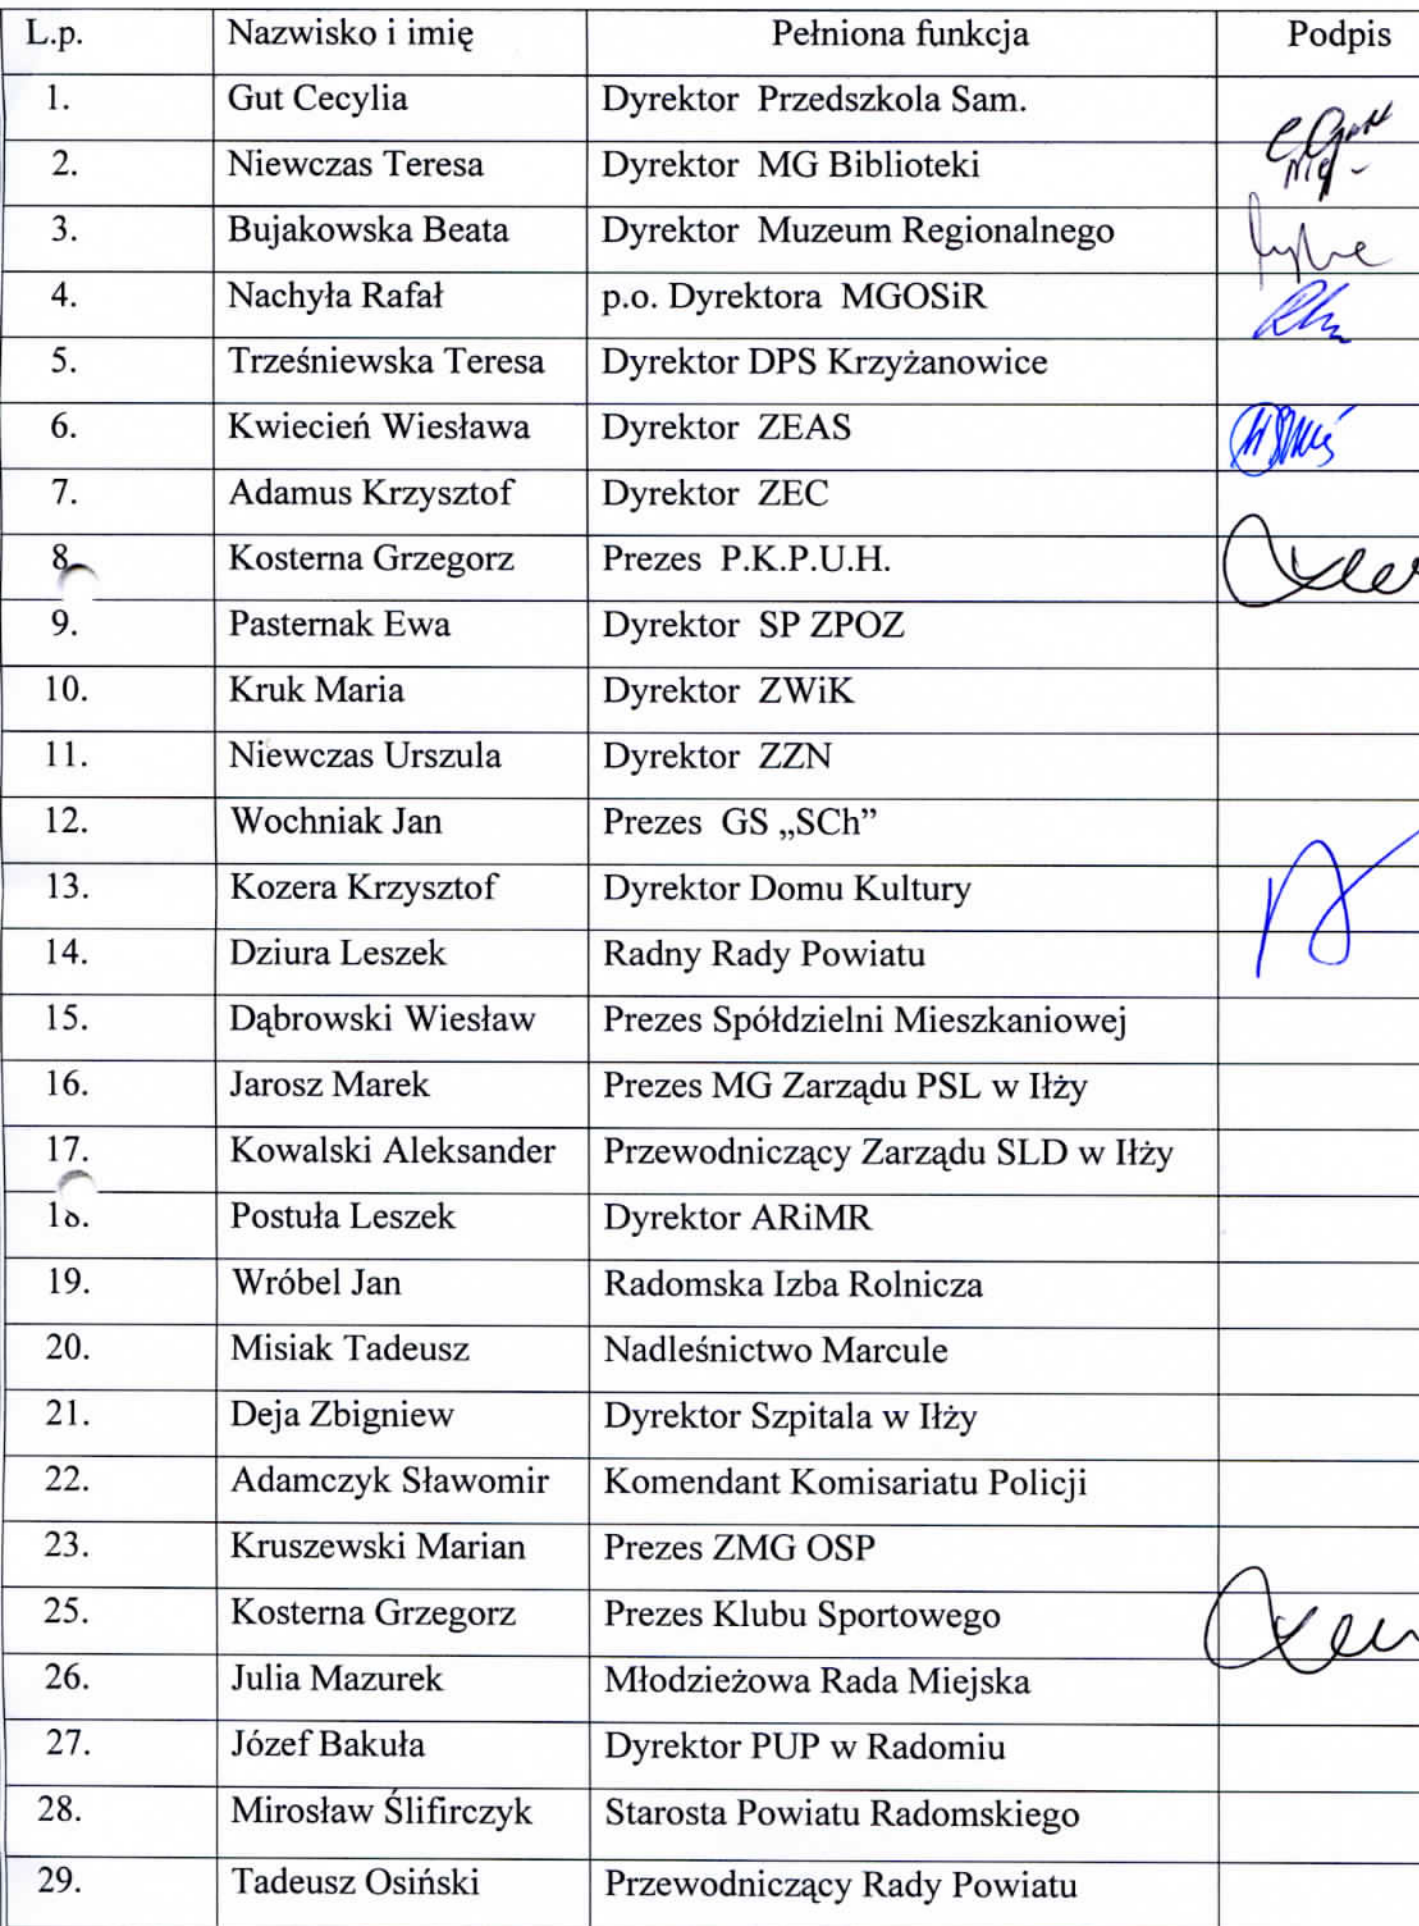 L.p. Nazwisko i imię Pełniona funkcja Podpis
1. Gut Cecylia Dyrektor Przedszkola Sam.
2. Niewczas Teresa Dyrektor MG Biblioteki
3. Bujakowska Beata Dyrektor Muzeum Regionalnego
4. Nachyła Rafał p.o. Dyrektora MGOSiR
5. Trześniewska Teresa Dyrektor DPS Krzyżanowice
6. Kwiecień Wiesława Dyrektor ZEAS
7. Adamus Krzysztof Dyrektor ZEC
8. Kosterna Grzegorz Prezes P.K.P.U.H.
9. Pasternak Ewa Dyrektor SP ZPOZ
10. Kruk Maria Dyrektor ZWiK
11. Niewczas Urszula Dyrektor ZZN
12. Wochniak Jan Prezes GS „SCh”
13. Kozera Krzysztof Dyrektor Domu Kultury
14. Dziura Leszek Radny Rady Powiatu
15. Dąbrowski Wiesław Prezes Spółdzielni Mieszkaniowej
16. Jarosz Marek Prezes MG Zarządu PSL w Iłży
17. Kowalski Aleksander Przewodniczący Zarządu SLD w Iłży
18. Postuła Leszek Dyrektor ARiMR
19. Wróbel Jan Radomska Izba Rolnicza
20. Misiak Tadeusz Nadleśnictwo Marcule
21. Deja Zbigniew Dyrektor Szpitala w Iłży
22. Adamczyk Sławomir Komendant Komisariatu Policji
23. Kruszewski Marian Prezes ZMG OSP
25. Kosterna Grzegorz Prezes Klubu Sportowego
26. Julia Mazurek Młodzieżowa Rada Miejska
27. Józef Bakuła Dyrektor PUP w Radomiu
28. Mirosław Ślifirczyk Starosta Powiatu Radomskiego
29. Tadeusz Osiński Przewodniczący Rady Powiatu